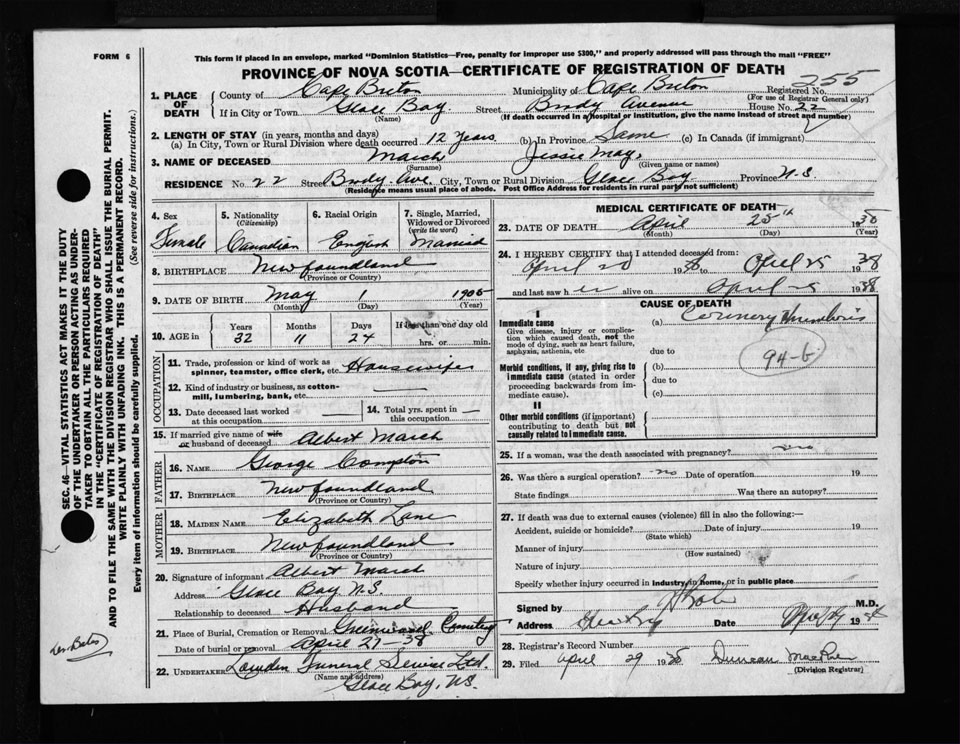 FORM 6
This form if placed in an envelope, marked "Dominion Statistics—Free, penalty for improper use $300," and properly addressed will pass through the mail "FREE"
PROVINCE OF NOVA SCOTIA—CERTIFICATE OF REGISTRATION OF DEATH
255
1. PLACE OF DEATH
County of Cape Breton Municipality of Cape Breton Registered No.
(For use of Registrar General only)
If in City or Town Glace Bay. Street Brody Avenue House No. 22
(Name) (If death occurred in a hospital or institution, give the name instead of street and number)
2. LENGTH OF STAY (in years, months and days)
(a) In City, Town or Rural Division where death occurred 12 years. (b) In Province Same (c) In Canada (if immigrant)
3. NAME OF DECEASED March Jessie May.
(Surname) (Given name or names)
RESIDENCE No. 22 Street Brody Ave. City, Town or Rural Division Glace Bay Province N.S.
(Residence means usual place of abode. Post Office Address for residents in rural parts not sufficient)
SEC. 46—VITAL STATISTICS ACT MAKES IT THE DUTY
OF THE UNDERTAKER OR PERSON ACTING AS UNDER-
TAKER TO OBTAIN ALL THE PARTICULARS REQUIRED
IN THE "CERTIFICATE OF REGISTRATION OF DEATH"
AND TO FILE THE SAME WITH THE DIVISION REGISTRAR WHO SHALL ISSUE THE BURIAL PERMIT.
WRITE PLAINLY WITH UNFADING INK. THIS IS A PERMANENT RECORD.
Every item of information should be carefully supplied. (See reverse side for instructions.)
4. Sex
Female
5. Nationality
(Citizenship)
Canadian
6. Racial Origin
English
7. Single, Married, Widowed or Divorced
(write the word)
Married
8. BIRTHPLACE Newfoundland
(Province or Country)
9. DATE OF BIRTH May 1 1905
(Month) (Day) (Year)
10. AGE in Years Months Days If less than one day old
32 11 24 hrs. or min.
OCCUPATION
11. Trade, profession or kind of work as
spinner, teamster, office clerk, etc. Housewife
12. Kind of industry or business, as cotton-
mill, lumbering, bank, etc.
13. Date deceased last worked
at this occupation
14. Total yrs. spent in
this occupation
15. If married give name of wife
or husband of deceased Albert March
FATHER
16. NAME George Compton
17. BIRTHPLACE Newfoundland
(Province or Country)
MOTHER
18. MAIDEN NAME Elizabeth Lane
19. BIRTHPLACE Newfoundland
(Province or Country)
20. Signature of informant Albert March
Address Glace Bay N.S.
Relationship to deceased Husband
21. Place of Burial, Cremation or Removal Greenwood Cemetery
Date of burial or removal April 27-38
22. UNDERTAKER Lowden Funeral Service Ltd.
(Name and address)
Glace Bay, N.S.
MEDICAL CERTIFICATE OF DEATH
23. DATE OF DEATH April 25th 1938
(Month) (Day) (Year)
24. I HEREBY CERTIFY that I attended deceased from:
April 20 1938 to April 25 1938
and last saw her alive on April 25 1938
CAUSE OF DEATH
I
Immediate cause
Give disease, injury or complica-
tion which caused death, not the
mode of dying, such as heart failure,
asphyxia, asthenia, etc
(a) Coronery thrombosis
due to
94-b
Morbid conditions, if any, giving rise to
immediate cause (stated in order
proceeding backwards from im-
mediate cause).
(b)
due to
(c)
II
Other morbid conditions (if important)
contributing to death but not
causally related to immediate cause.
25. If a woman, was the death associated with pregnancy? no
26. Was there a surgical operation? no Date of operation 19
State findings Was there an autopsy?
27. If death was due to external causes (violence) fill in also the following:—
Accident, suicide or homicide? Date of injury 19
(State which)
Manner of injury
(How sustained)
Nature of injury
Specify whether injury occurred in industry, in home, or in public place
Signed by M.D.
Address Date 19
28. Registrar's Record Number
29. Filed April 29 1938 Duncan MacRae
(Division Registrar)